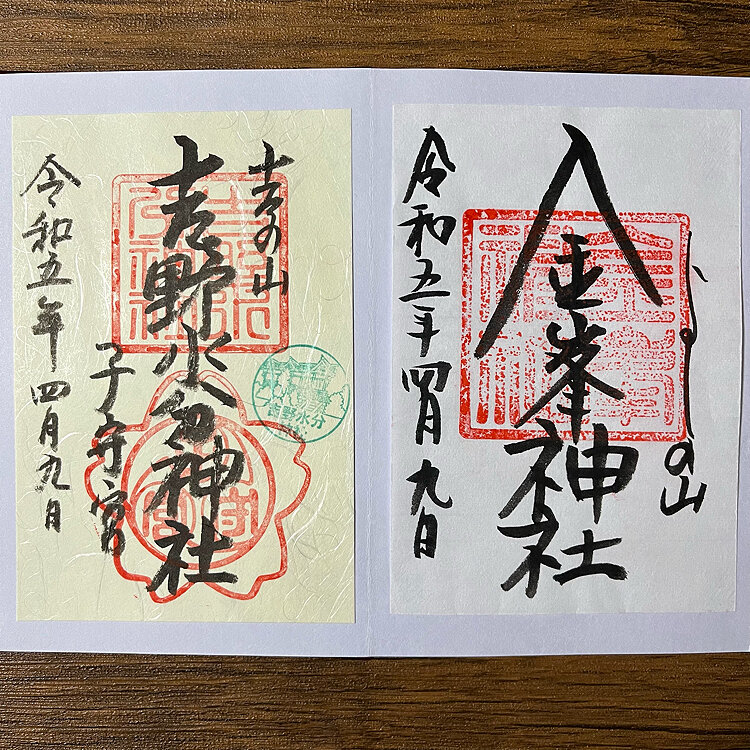 よしの山
金峯神社
令和五年四月九日
吉の山
吉野水分神社
子守宮
令和五年四月九日
吉野水分